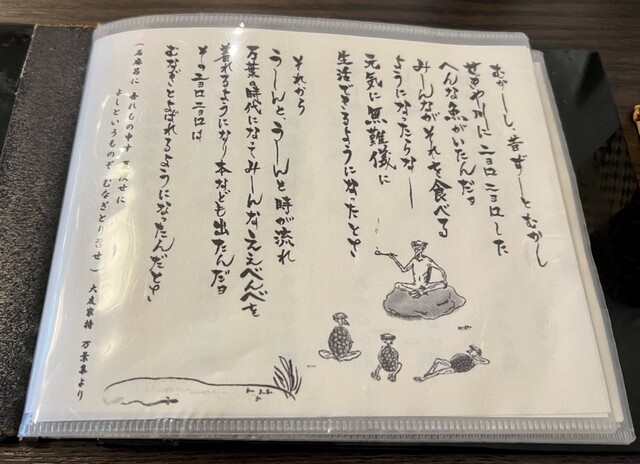 むかーし、昔ずーとむかし
せぎや川にニョロニョロした
へんな魚がいたんだヨ
みーんながそれを食べる
ようになったらなー
元気に無難儀に
生活できるようになったとさ
それから
うーんと、うーんと時が流れ
万葉時代になってみーんなええべんべを
着れるようになり本なども出たんだヨ
そのニョロニョロは
むなぎとよばれるようになったんだとさ
(石麻呂に 吾れもの申す 夏痩せに
よしというものぞ むなぎとり召せ) 大友家持 万葉集より